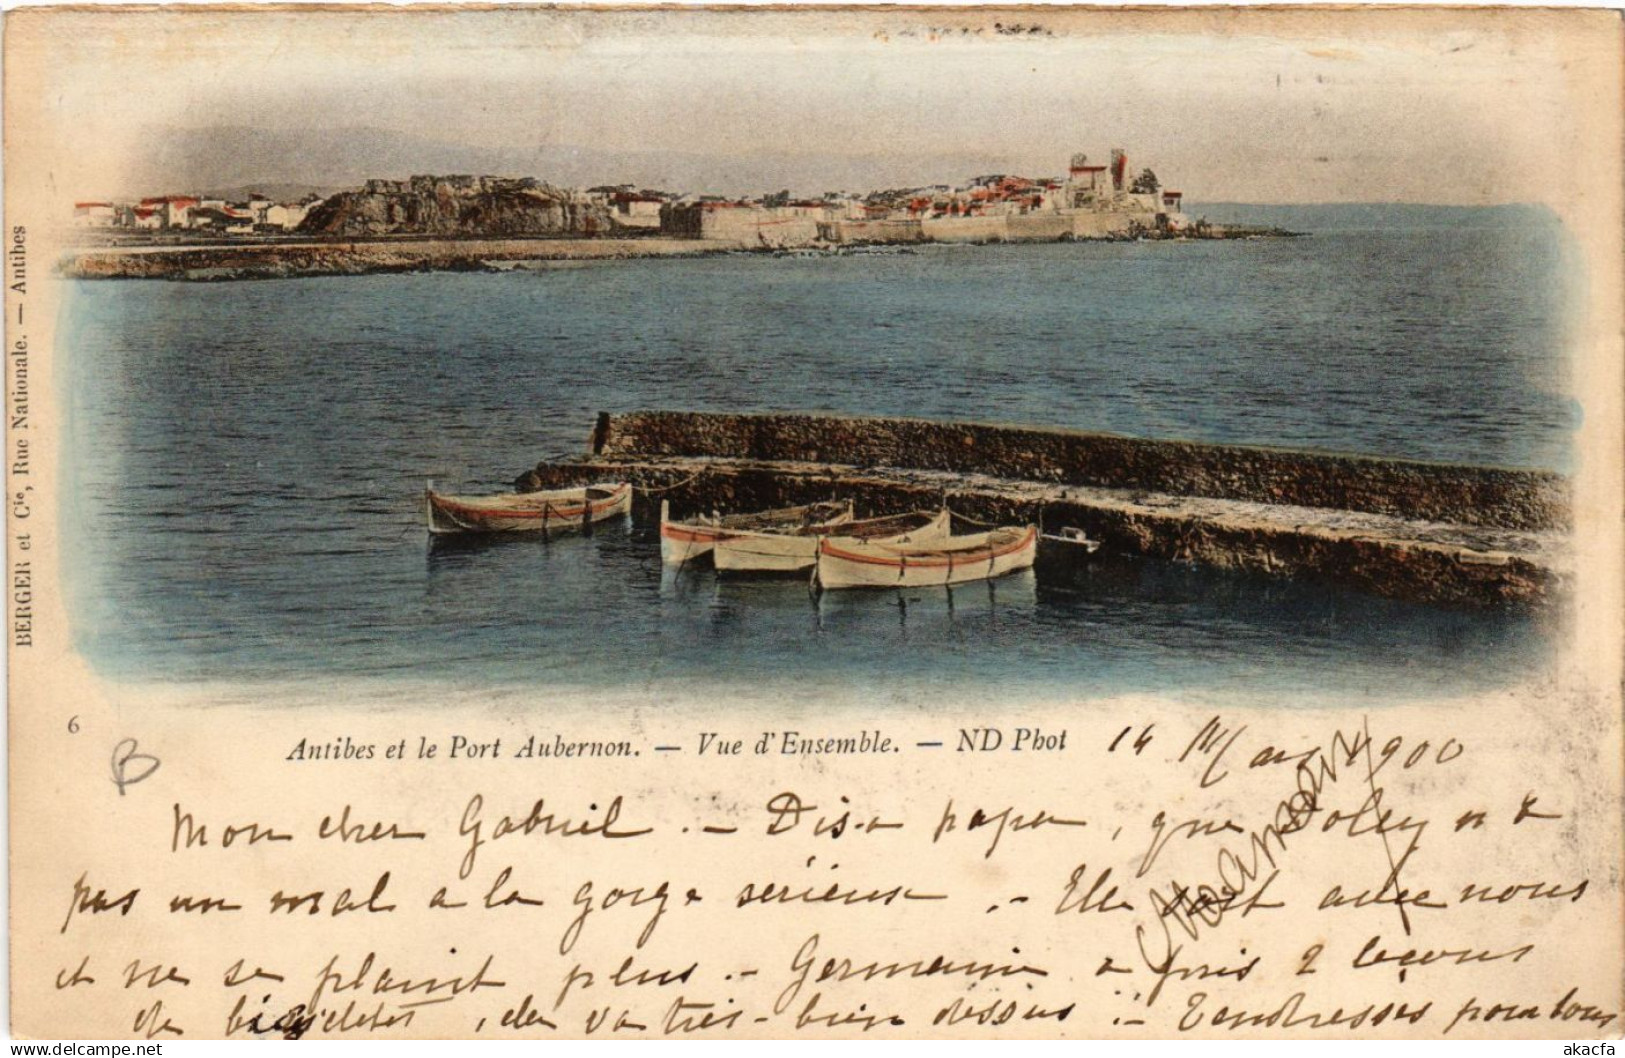 BERGER et Cie, Rue Nationale. — Antibes
6
Antibes et le Port Aubernon. — Vue d'Ensemble. — ND Phot
14 Mars 1900
B
Mon cher Gabriel. — Dis à papa, que Dolly n'a
pas un mal a la gorge sérieux. — Elle sort avec nous
et ne se plaint plus. — Germaine a pris 2 leçons
de bicyclette, elle va très-bien dessus :- Tendresses pour tous
Maman
akacfa
Delcampe.net
www.akacfa.com